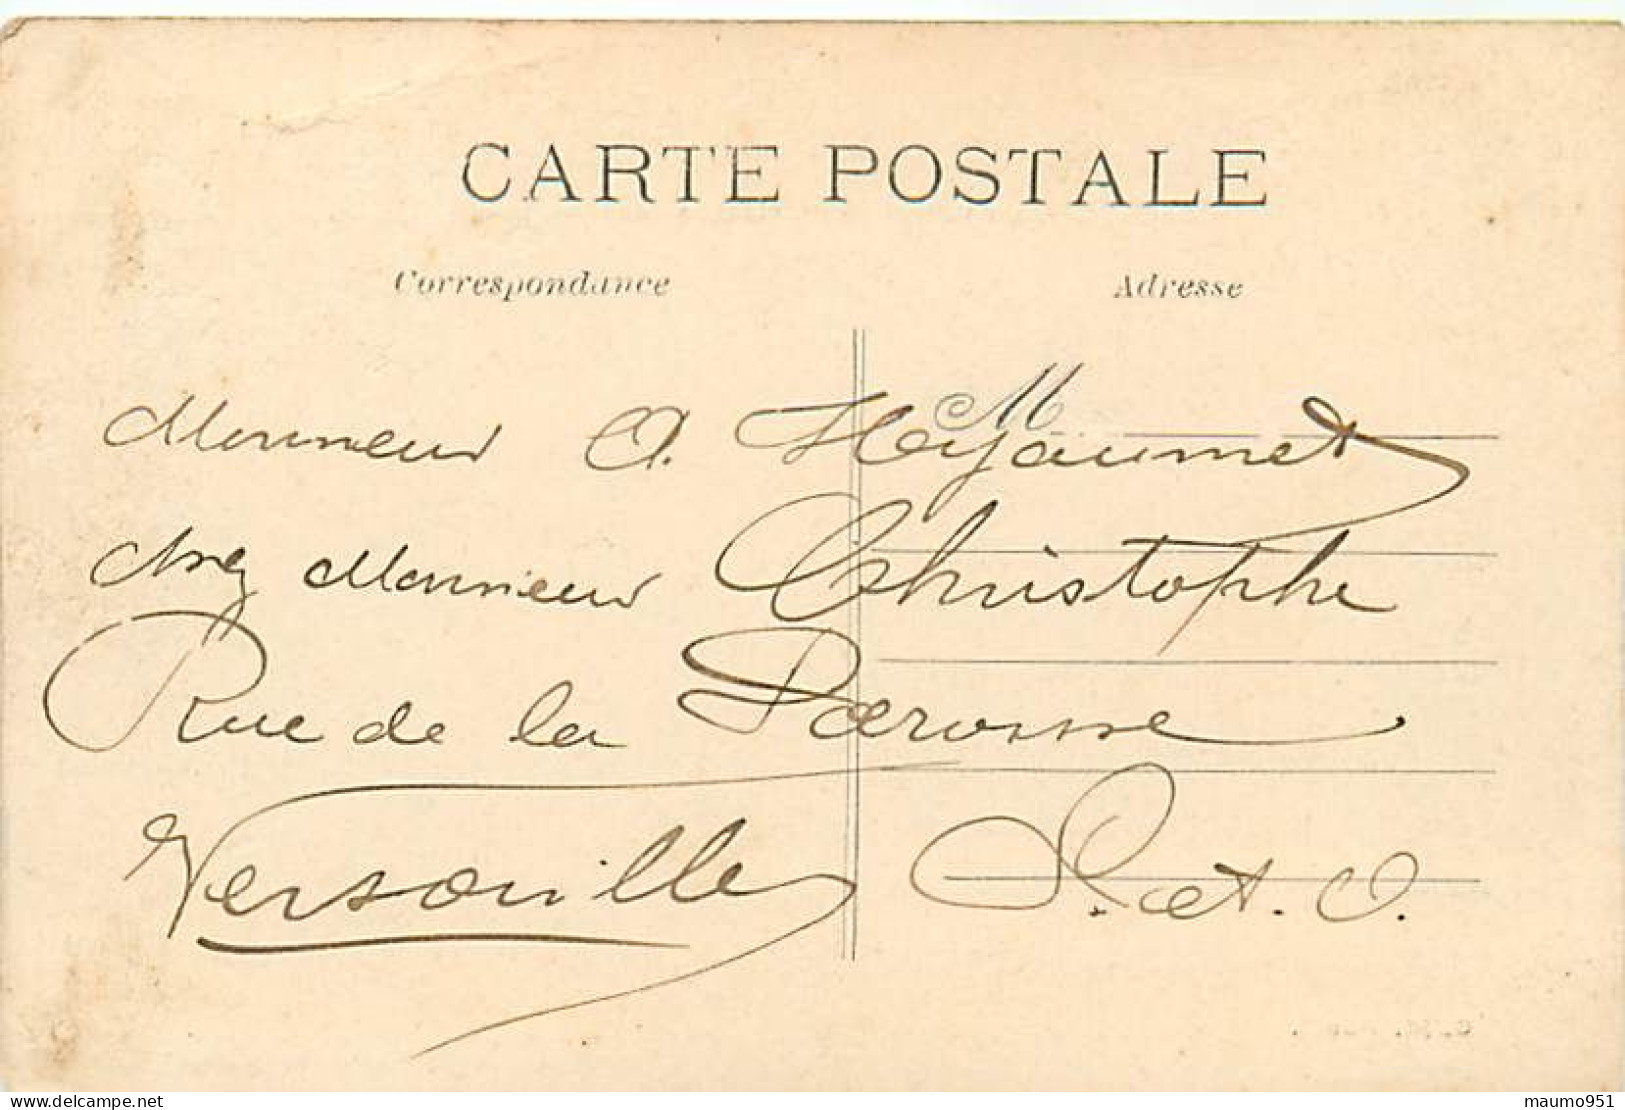 CARTE POSTALE
Correspondance
Adresse
M
Monsieur A. Hoyaumet
chez Monsieur Christophe
Rue de la Paroisse
Versailles S. et. O.
delcampe.net
maumo951